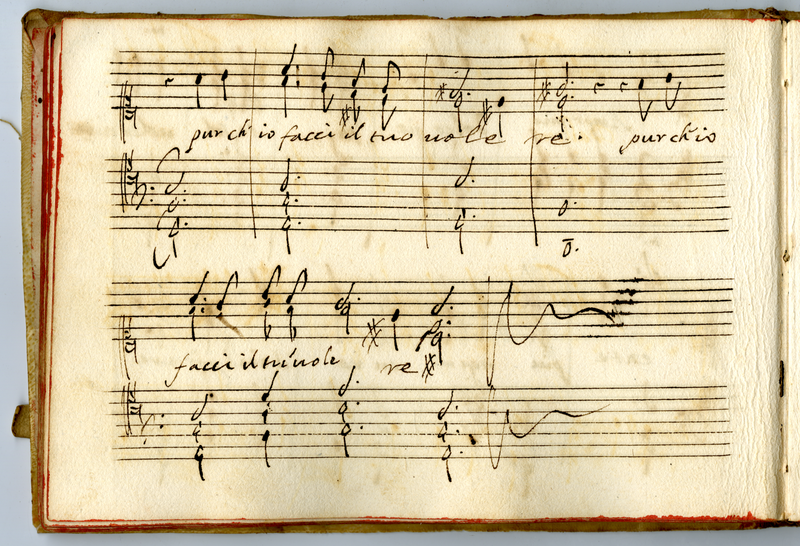 pur ch'io facci il tuo uole re. pur ch'io
facci il tu' uole re